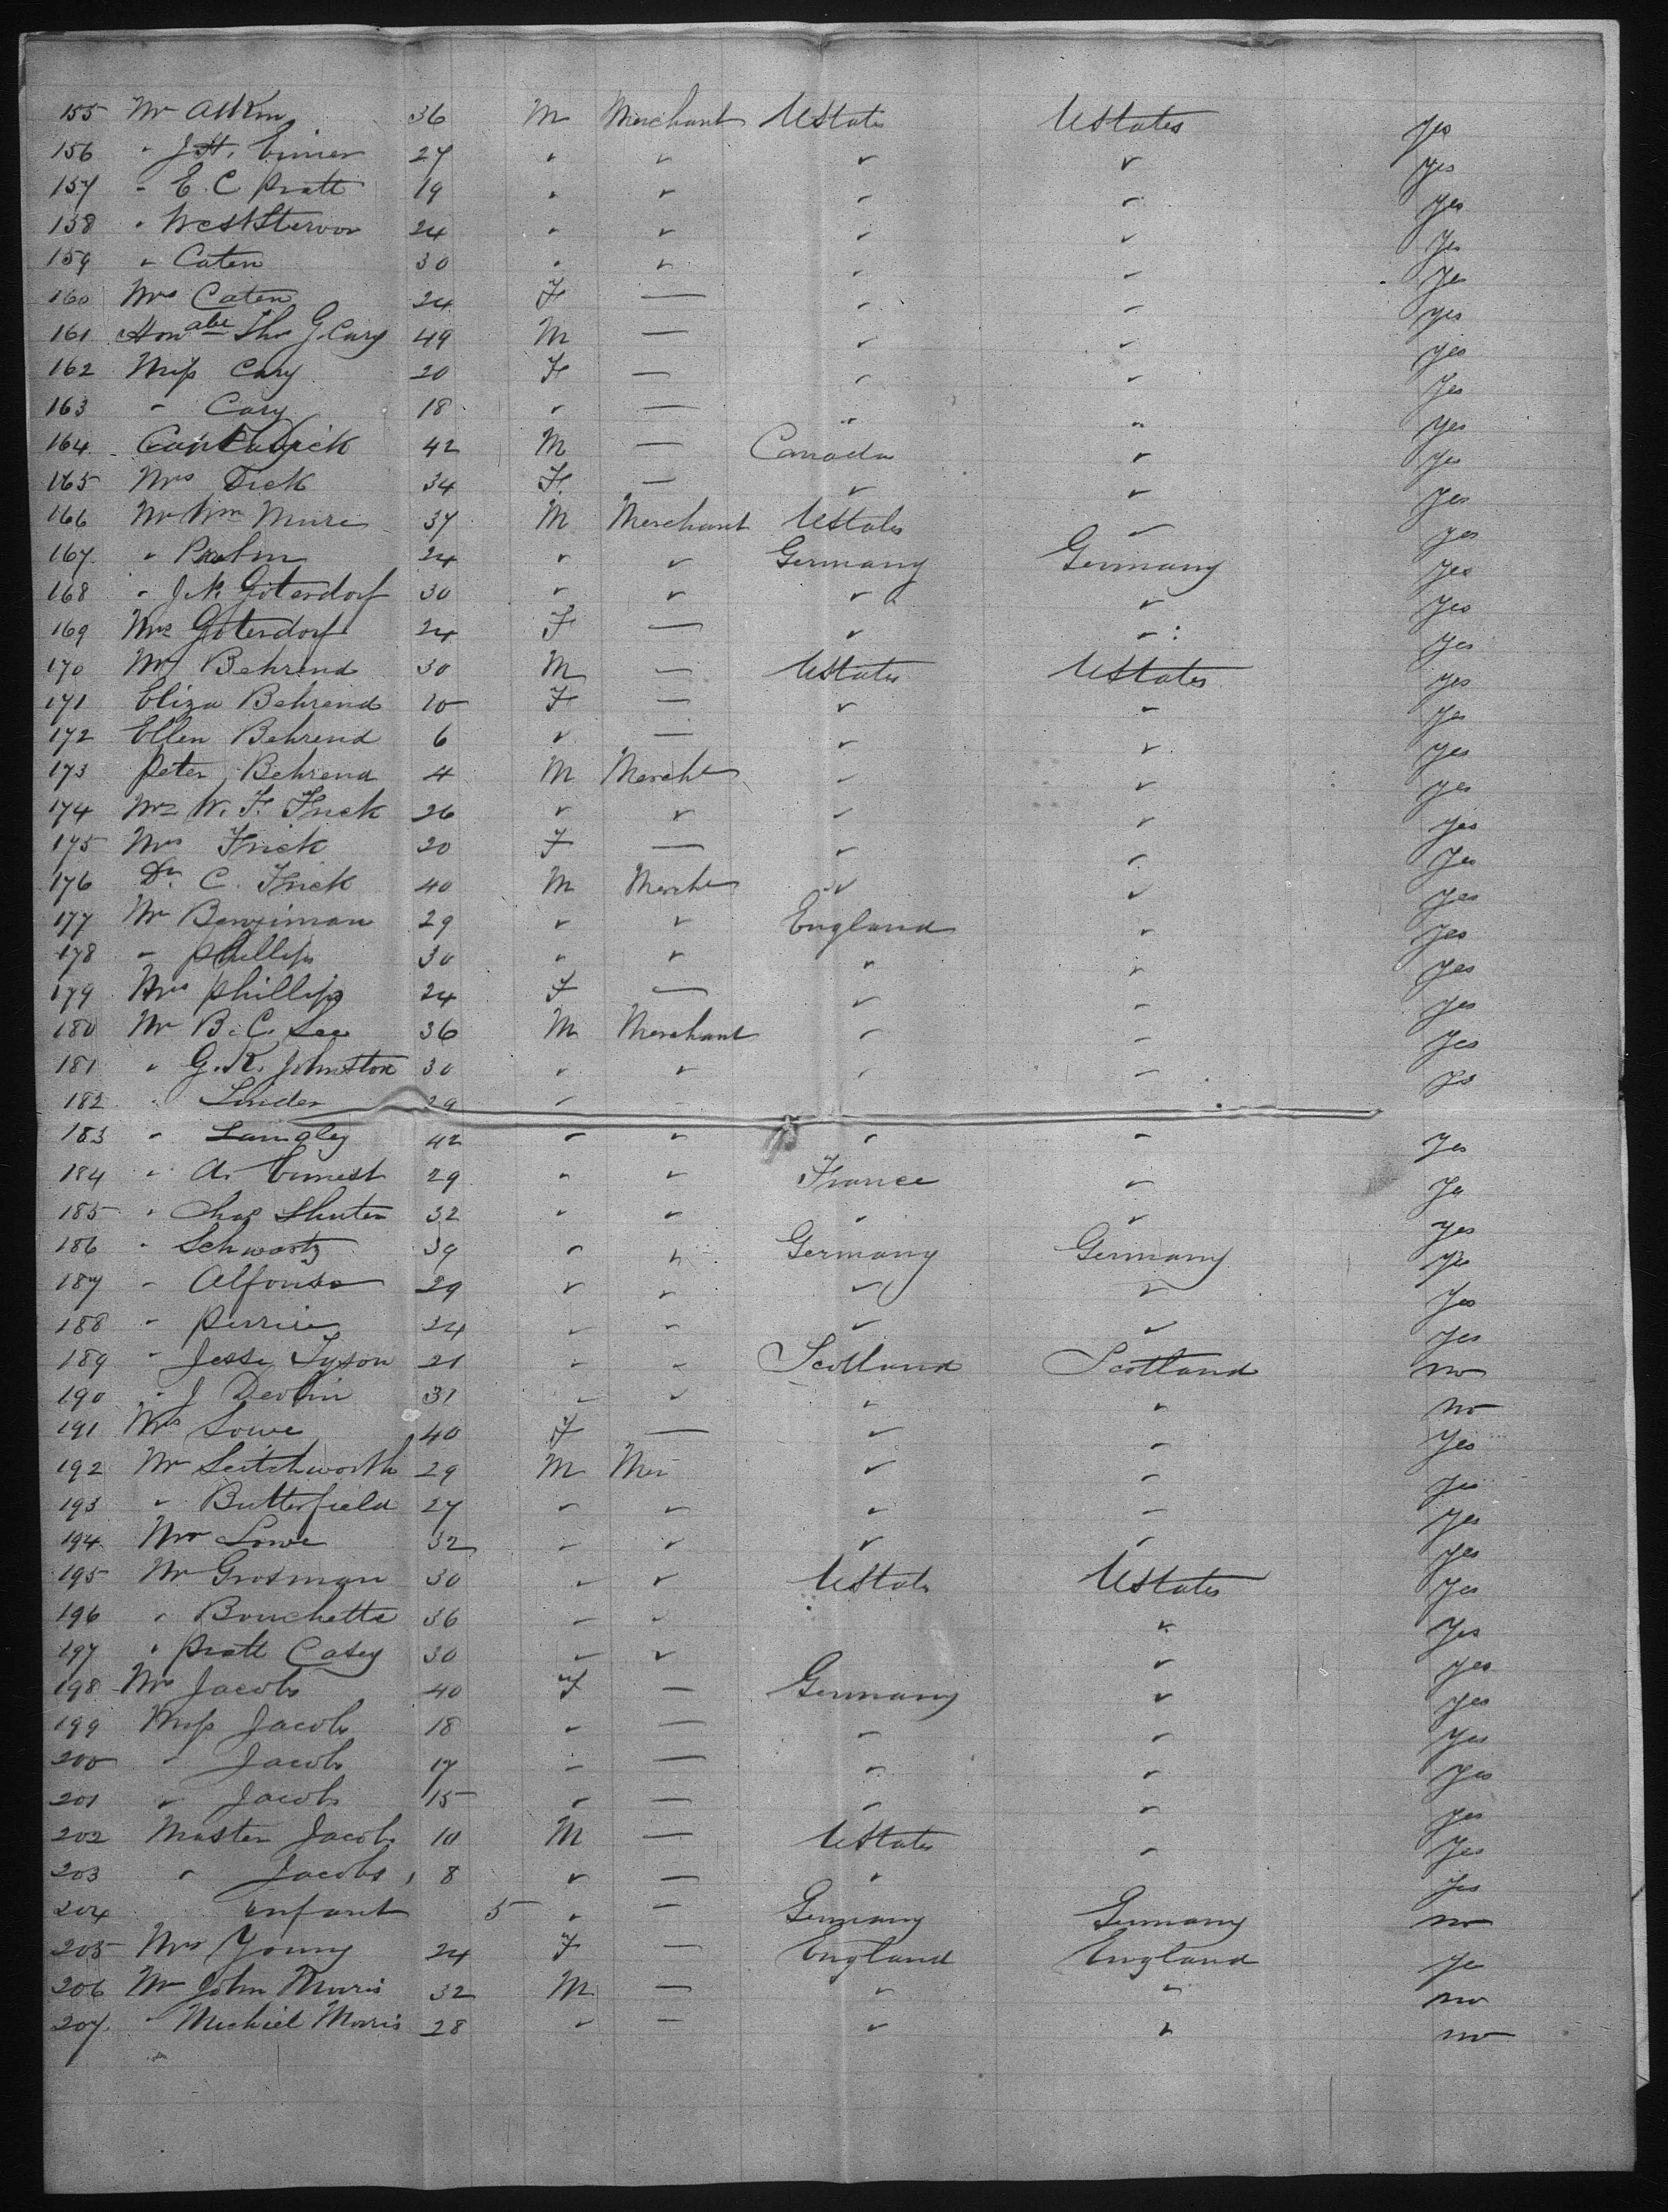 155 Mr Atkin 36 M Merchant UStates UStates yes
156 " J H. 27 " " " " yes
157 " E. C Pratt 19 " " " " yes
158 " 24 " " " " yes
159 " Caten 30 " " " " yes
160 Mrs Caten 24 F — " " yes
161 Honable Tho G. Cary 49 M — " " yes
162 Miss Cary 20 F — " " yes
163 " Cary 18 " — " " yes
164 42 M — Canada " yes
165 Mrs Dick 34 F — " " yes
166 Mr Wm Mure 37 M Merchant UStates " yes
167 " 24 " " Germany Germany yes
168 " J. N. Goterdorf 30 " " " " yes
169 Mrs Goterdorf 24 F — " " yes
170 Mr Behrend 30 M — UStates UStates yes
171 Eliza Behrend 10 F — " " yes
172 Ellen Behrend 6 " — " " yes
173 Peter Behrend 4 M Mercht " " yes
174 Mr W. F. Frick 26 " " " " yes
175 Mrs Frick 20 F — " " yes
176 Dr. C. Frick 40 M Mercht " " yes
177 Mr 29 " " England " yes
178 " Phillips 30 " " " " yes
179 Mrs Phillips 24 F — " " yes
180 Mr B. C. Lee 36 M Merchant " " yes
181 " G. K. Johnston 30 " " " " yes
182 " Linder 29 "
183 " Langley 42 " " " " yes
184 " A. Ernest 29 " " France " yes
185 " Chas Shuter 32 " " " " yes
186 " Schwartz 39 " " Germany Germany yes
187 " Alfonso 29 " " " " yes
188 " Perrie 24 " " " " yes
189 " Jesse Tyson 21 " " Scotland Scotland no
190 " J Devlin 31 " " " " no
191 Mrs Lowe 40 F — " " yes
192 Mr Leitchworth 29 M Mer " " yes
193 " Butterfield 27 " " " " yes
194 Mr Lowe 32 " " " " yes
195 Mr Grosman 30 " " UStates UStates yes
196 " Bouchette 36 " " " yes
197 " Pratt Casey 30 " " " yes
198 Mrs Jacobs 40 F — Germany " yes
199 Miss Jacobs 18 " — " " yes
200 " Jacobs 17 " — " " yes
201 " Jacobs 15 " — " " yes
202 Master Jacobs 10 M — UStates " yes
203 " Jacobs 8 " — " yes
204 infant 5 " — Germany Germany no
205 Mrs Young 24 F — England England ye
206 Mr John Morris 32 M — " " no
207 " Michiel Morris 28 " — " " no